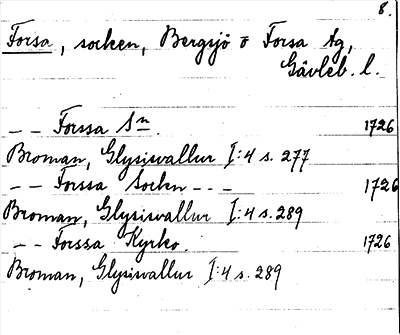 8.
Forsa, socken, Bergsjö o Forsa tg,
Gävleb. l.
-- Forssa Sn. 1726
Broman, Glysisvallur I:4 s. 277
-- Forssa Sockn -- 1726
Broman, Glysisvallur I:4 s. 289
-- Forssa Kyrko. 1726
Broman, Glysisvallur I:4 s. 289